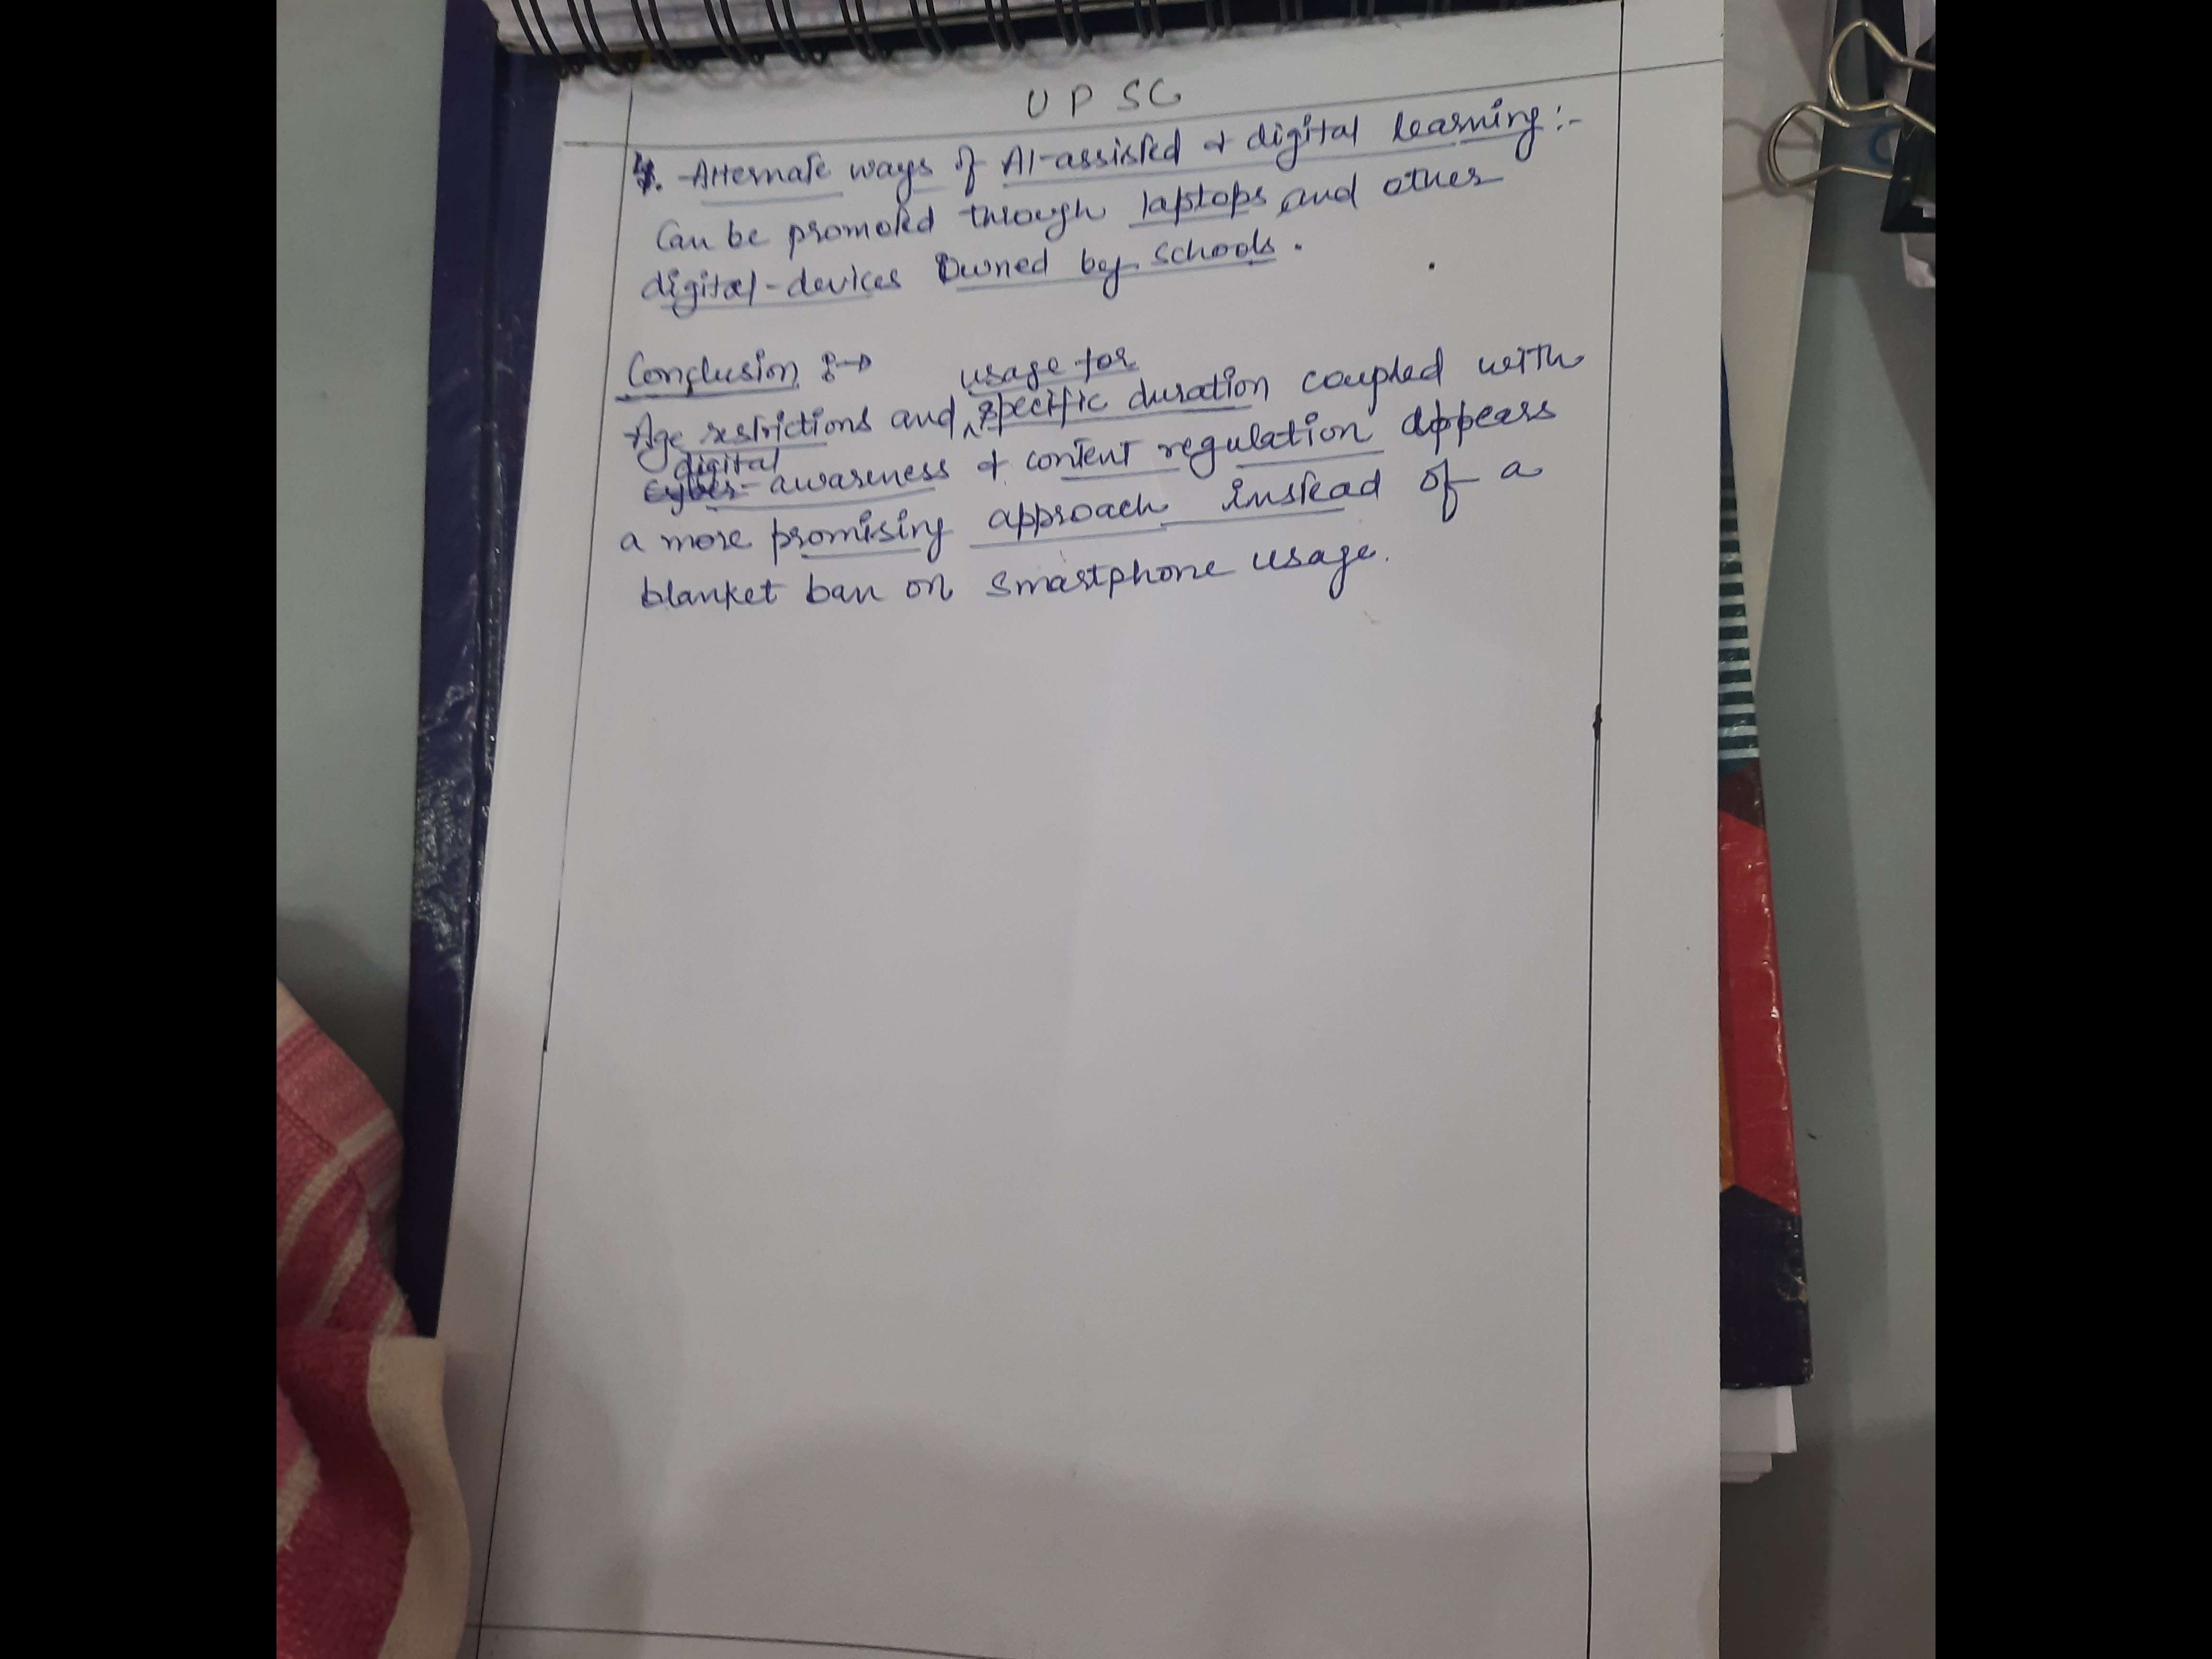 UPSC
4. Alternate ways of AI-assisted & digital learning :-
Can be promoted through laptops and other
digital-devices owned by schools.
Conclusion :→
usage for
Age restrictions and ^ specific duration coupled with
digital
cyber-awareness & content regulation appears
a more promising approach instead of a
blanket ban on smartphone usage.